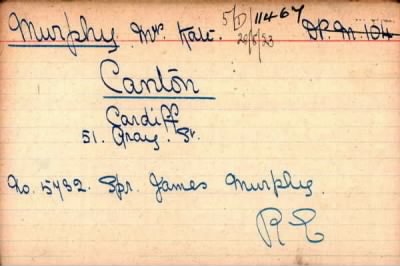 Murphy Mrs Kate. 5/D/11467 D.P. M. 104
26/8/23
Canton
Cardiff
51. Gray. St.
No. 5492. Spr. James Murphy.
R E